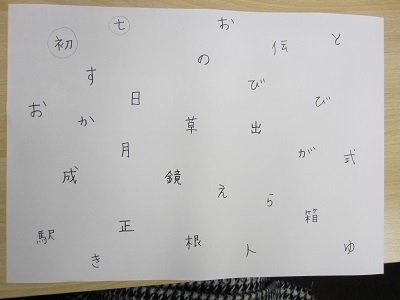 初 七 お 伝 と
す の
お か 日 び び
草 出
月 が 式
成 鏡 え ら
箱
駅 正 根 人 ゆ
き